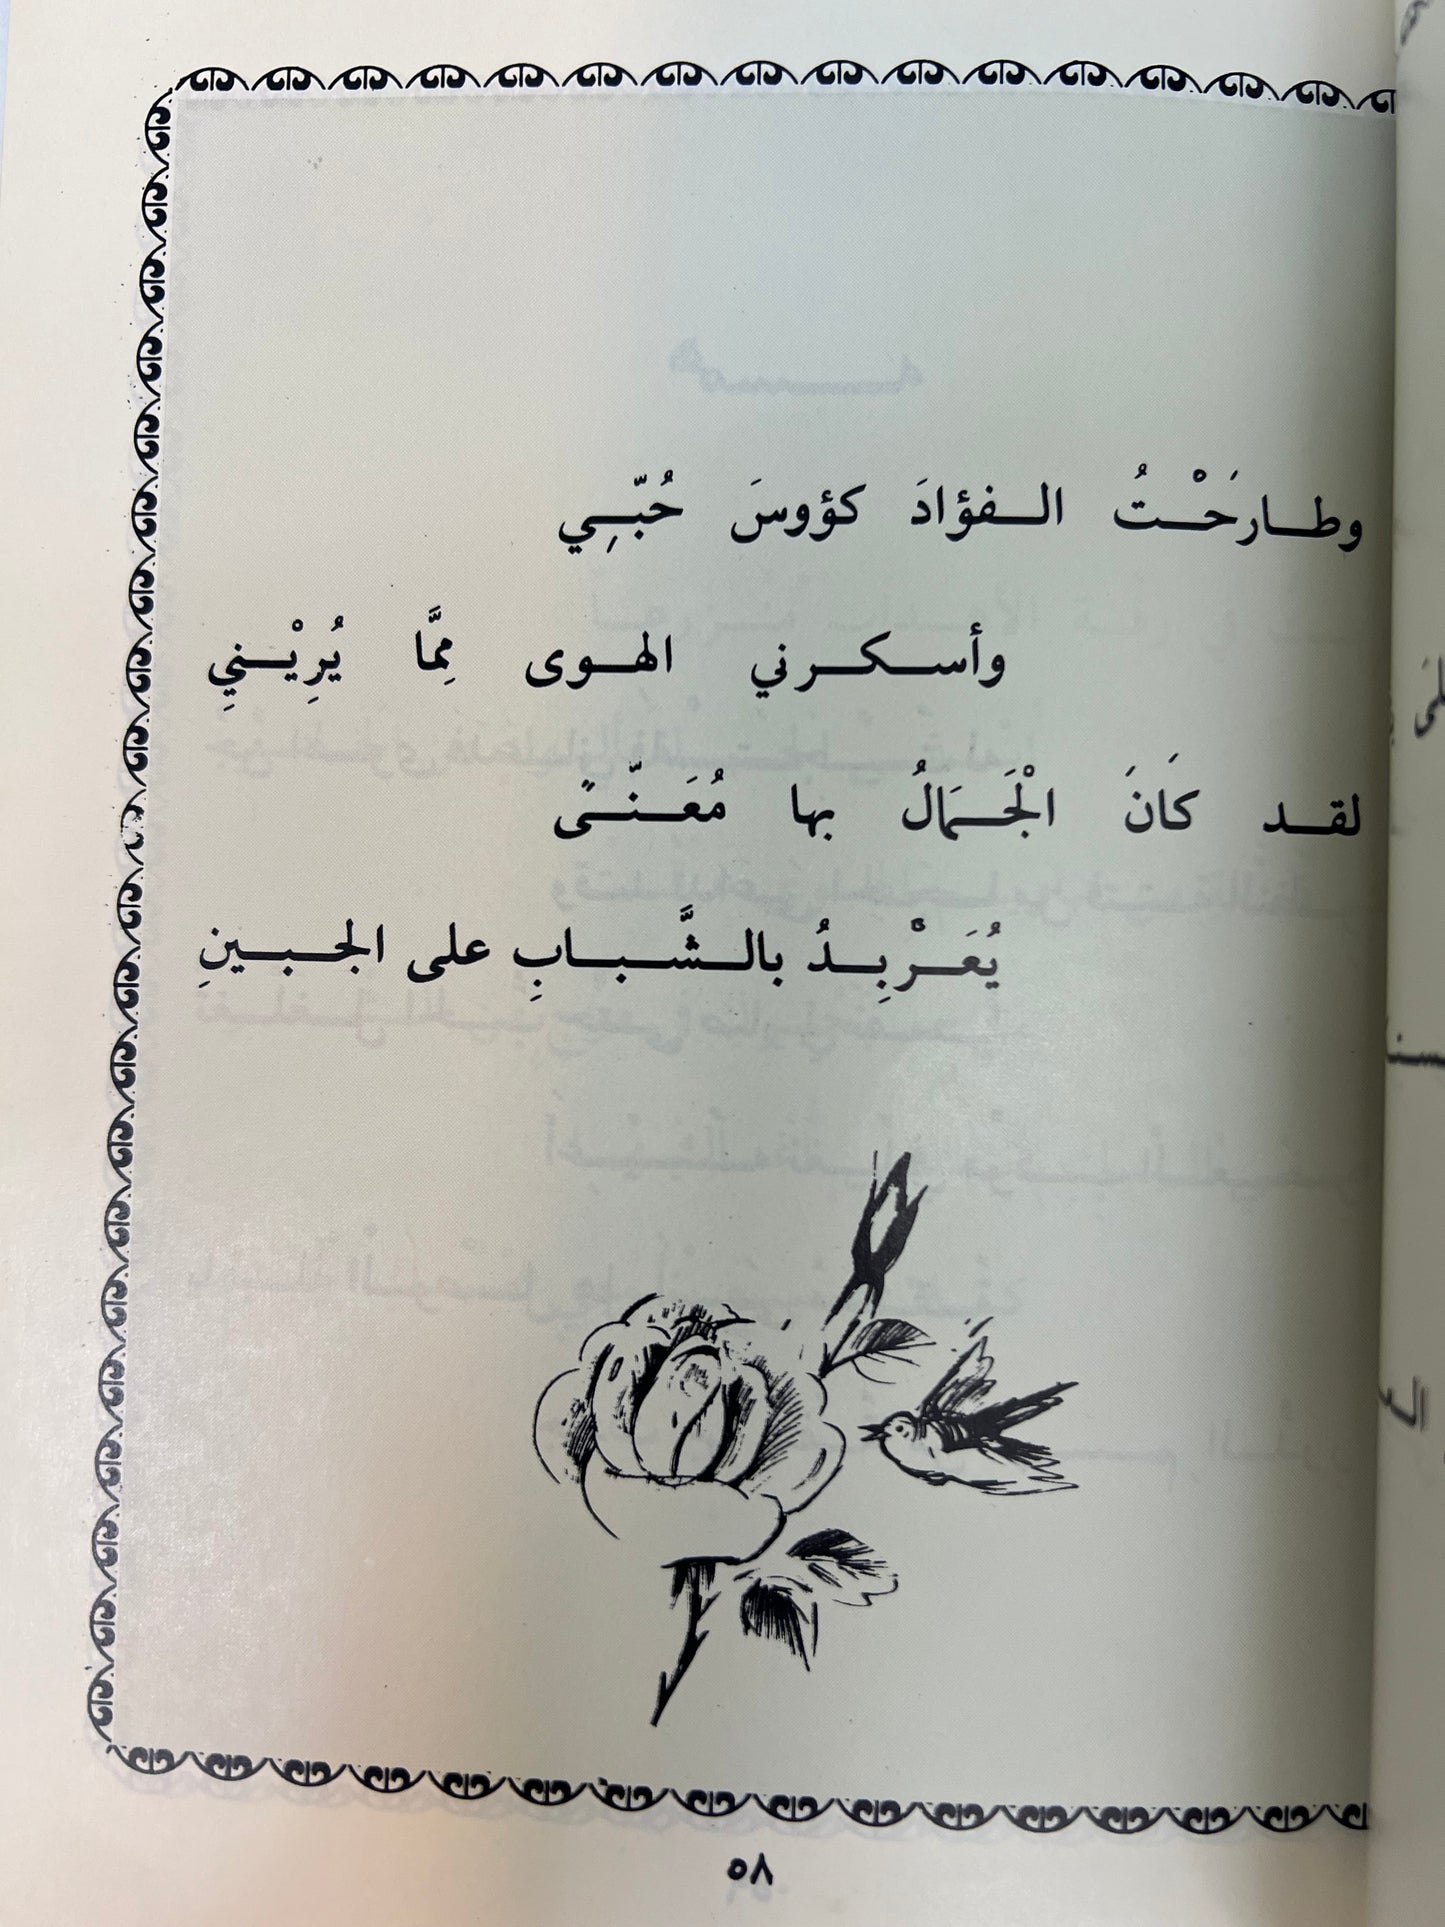 وطارَحْتُ الفؤادَ كؤوسَ حُبّـِي
وأسكرني الهوى مِمَّا يُرِيْنيِ
لقد كَانَ الْجَمَالُ بها مُعَنّىً
يُعَرْبِدُ بالشَّبابِ على الجبينِ
٥٨